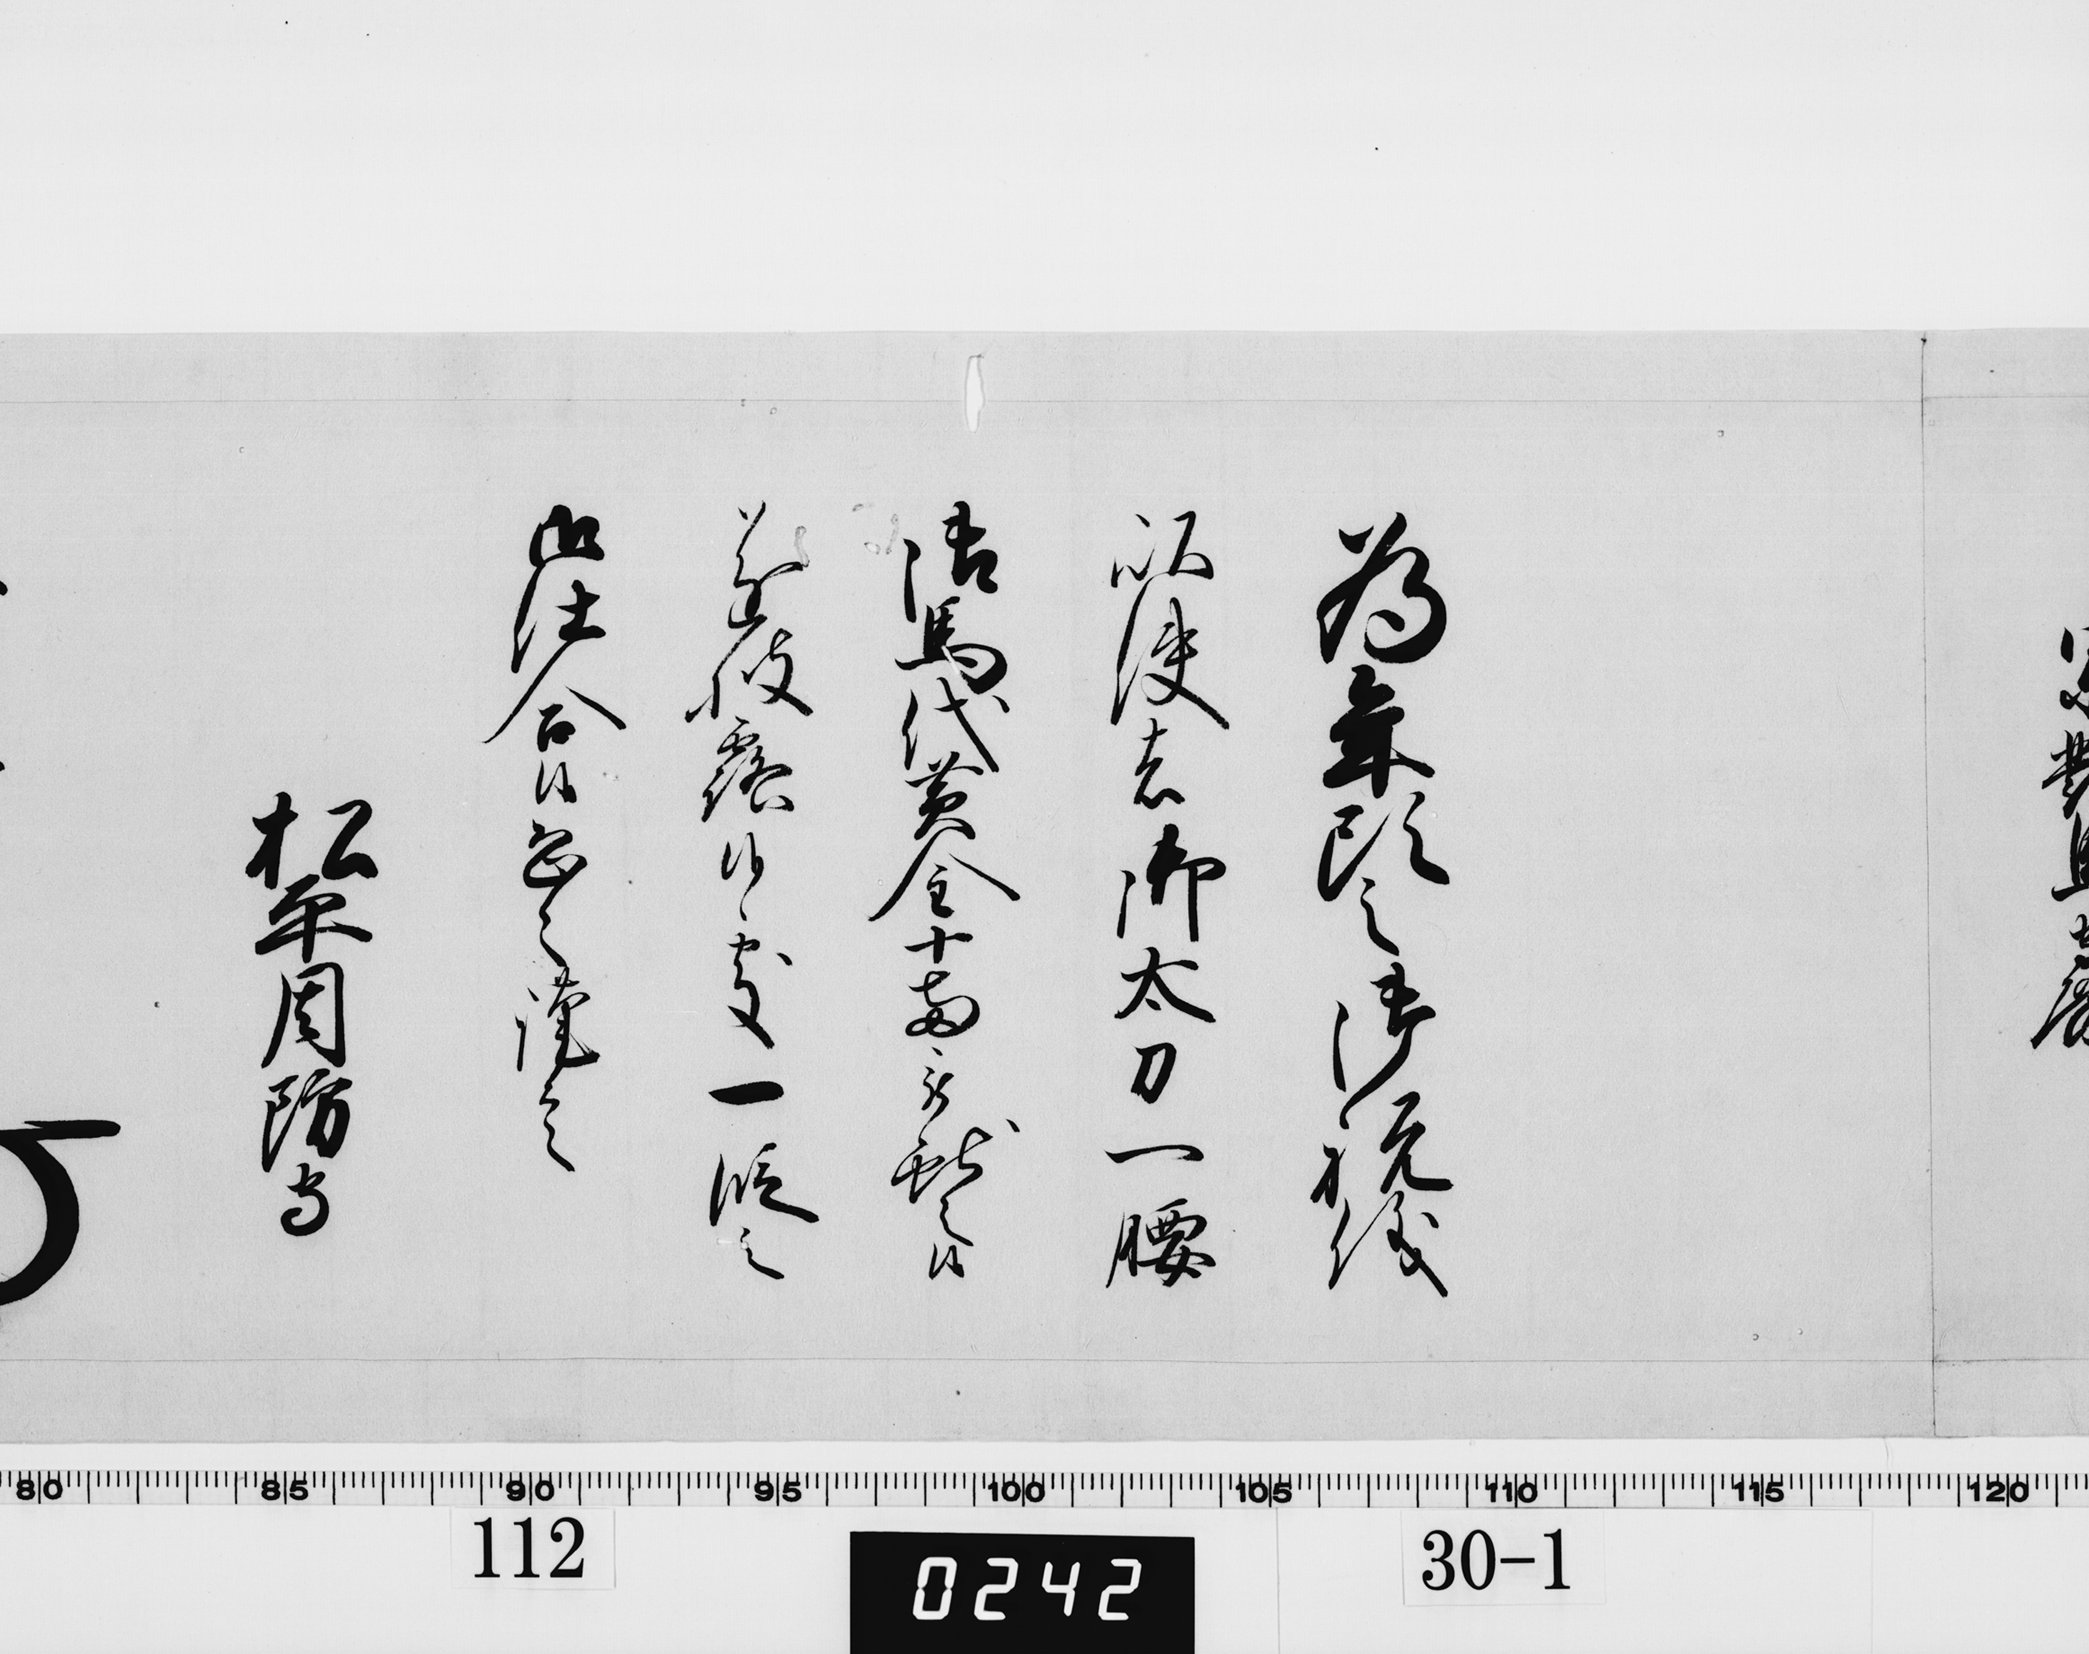 為年頭之御祝儀
以使者御太刀一腰
御馬代黄金十両被献之候
遂披露候處一段之
御仕合候恐々謹言
松平周防守
80 85 90 95 100 105 110 115 120
112
0242
30-1